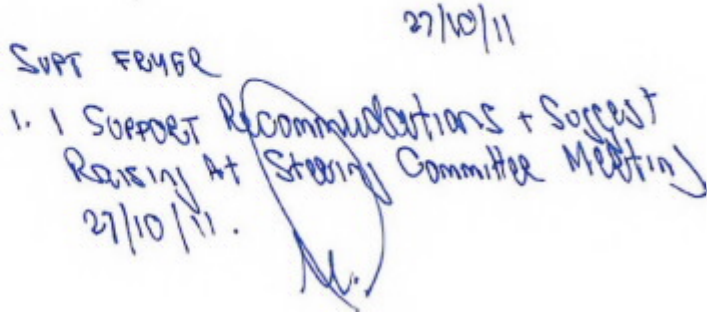 27/10/11
SUPT FRYER
1. I SUPPORT Recommendations + Suggest
Raising At Steering Committee Meeting
27/10/11.